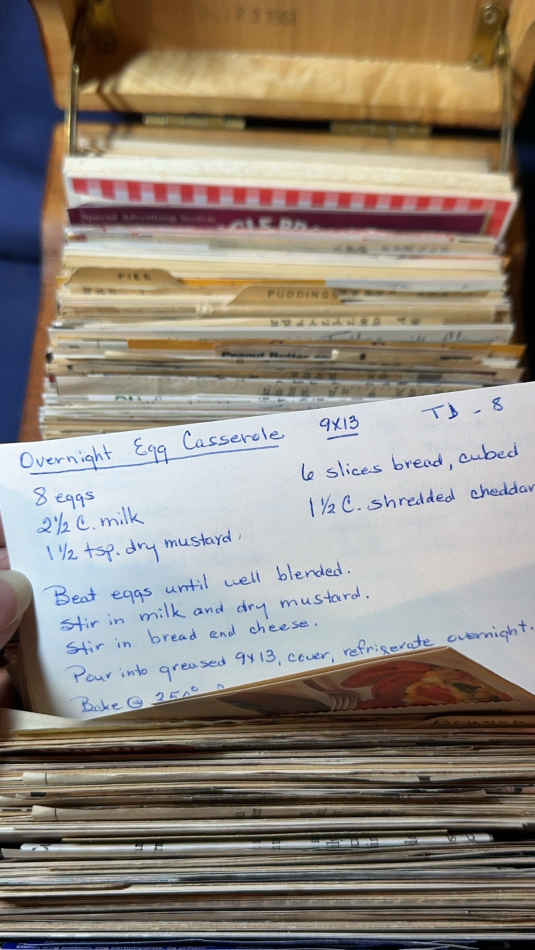 PIES
PUDDINGS
Peanut Butter
Overnight Egg Casserole 9x13 TB - 8
8 eggs
2 1/2 C. milk
1 1/2 tsp. dry mustard
6 slices bread, cubed
1 1/2 C. shredded cheddar
Beat eggs until well blended.
Stir in milk and dry mustard.
Stir in bread and cheese.
Pour into greased 9x13, cover, refrigerate overnight.
Bake @